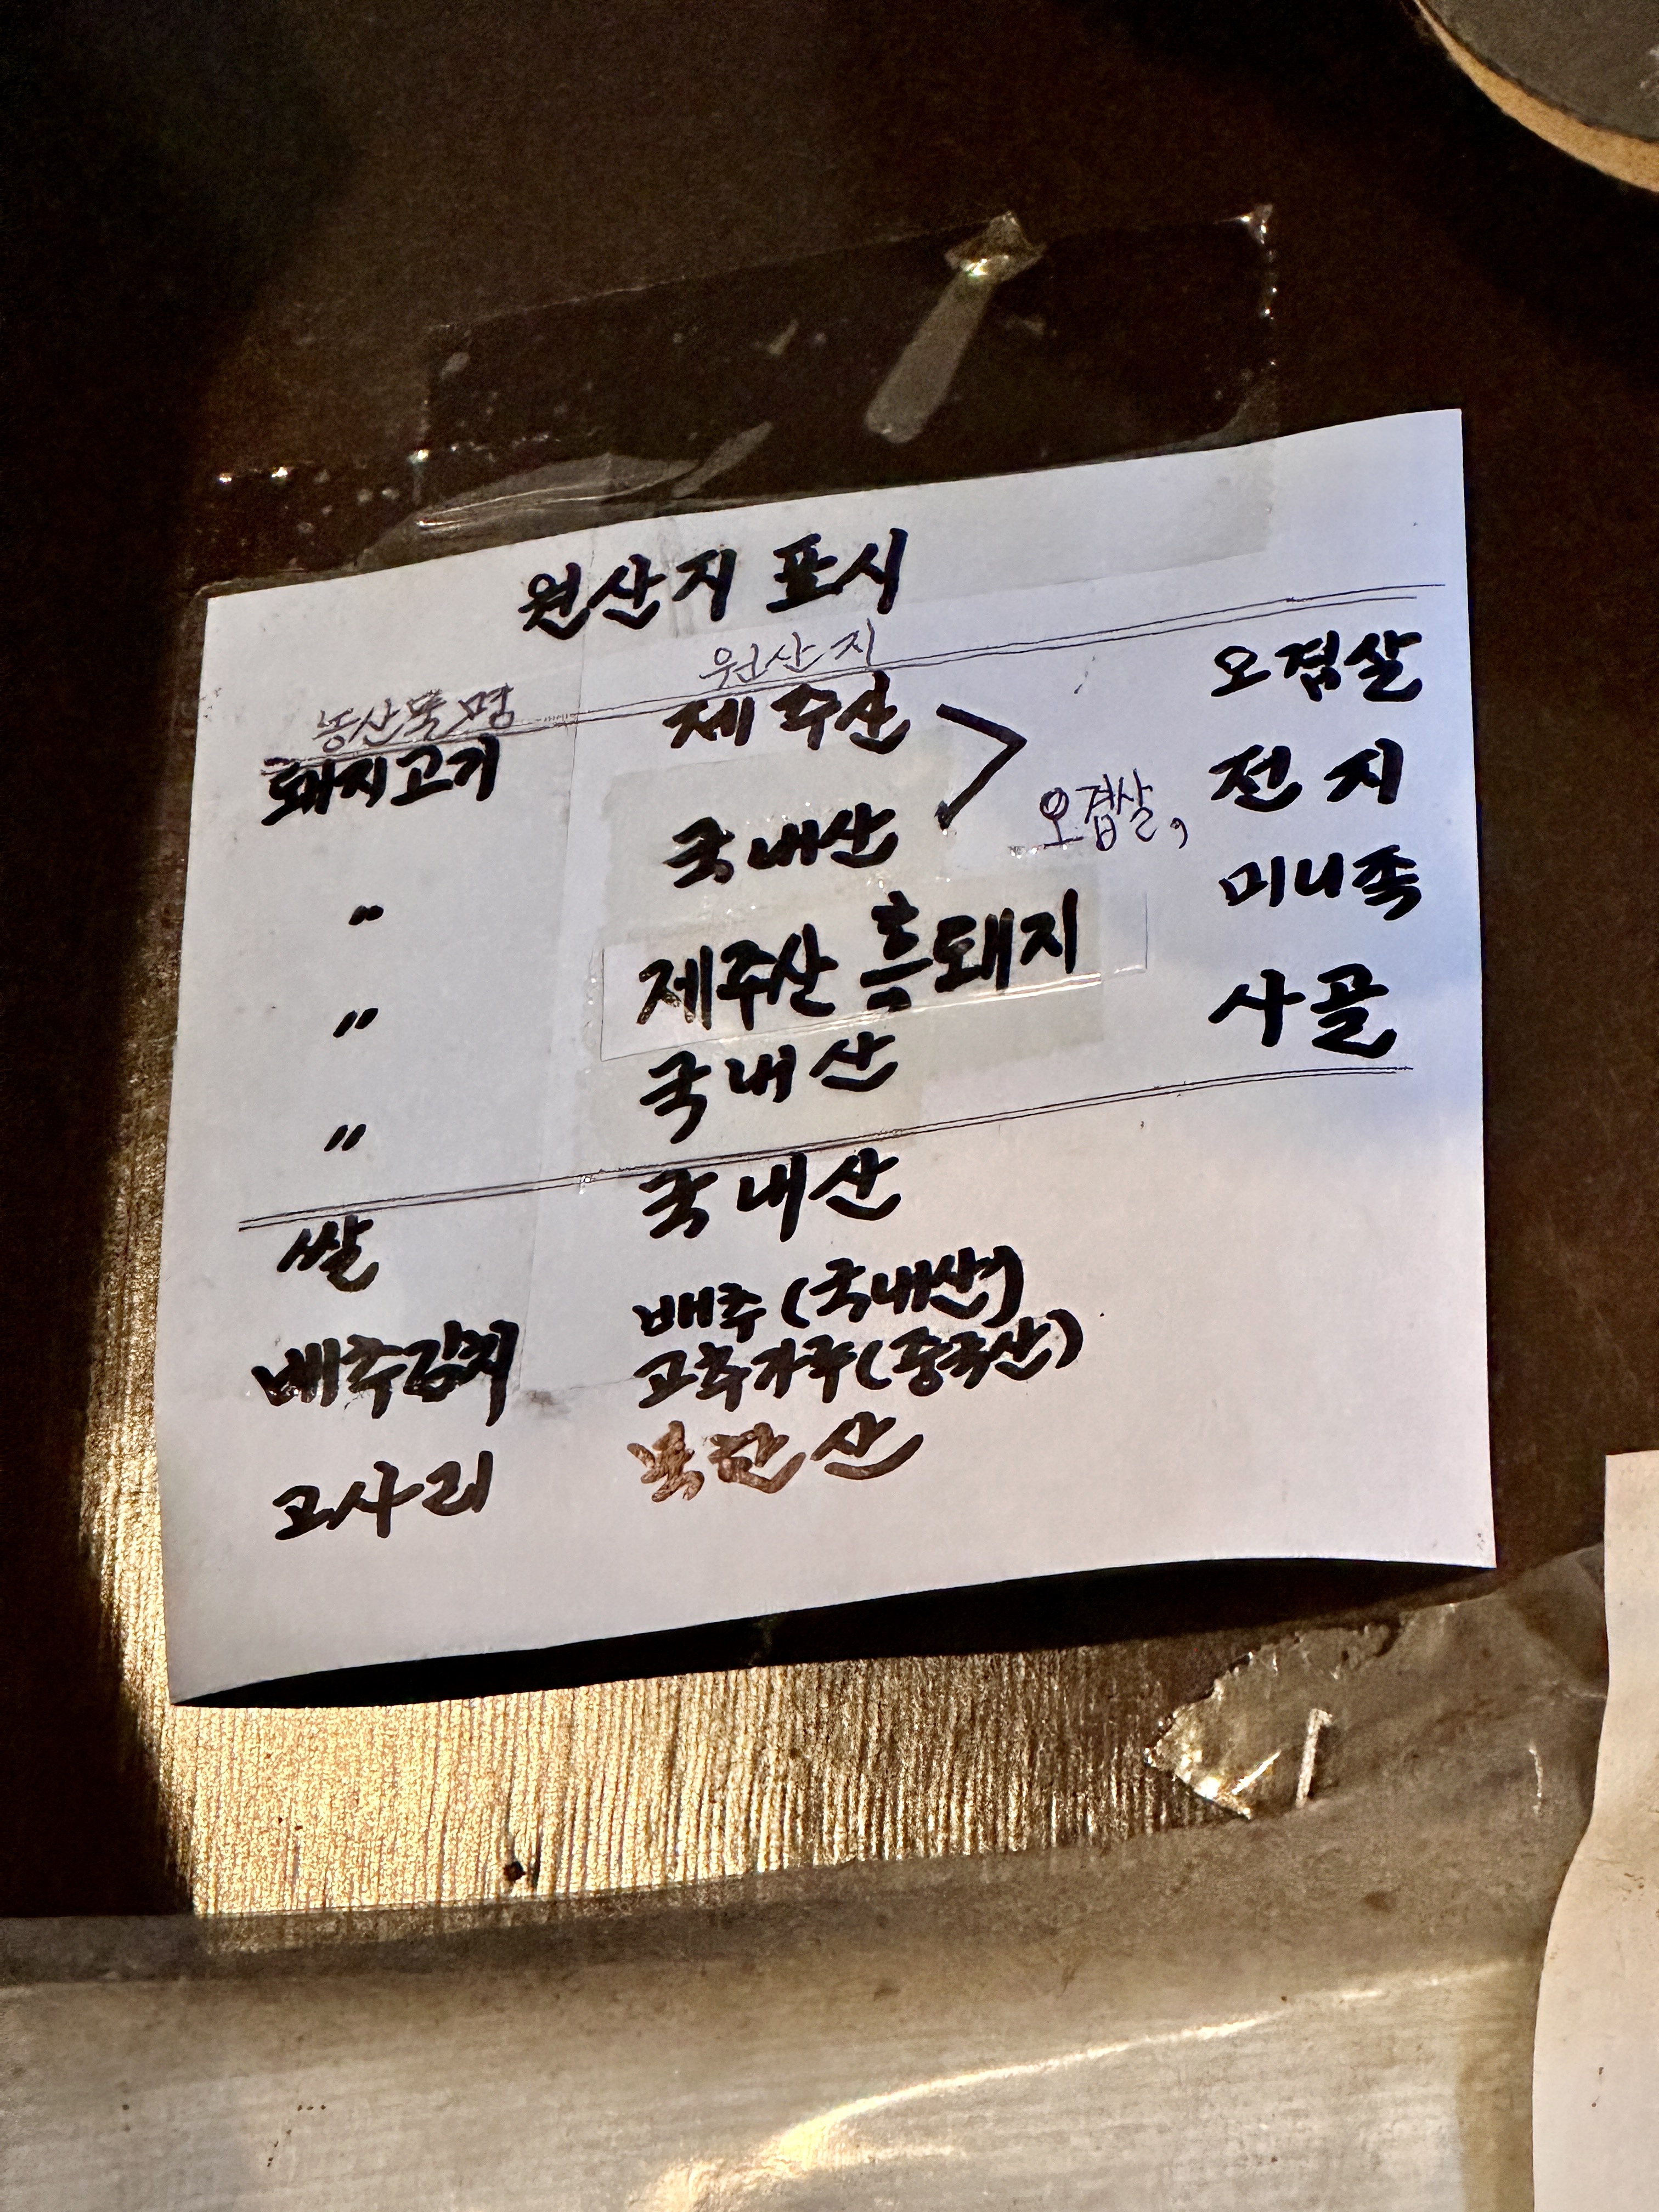 원산지 표시
농산물명 원산지
돼지고기 제주산 > 오겹살
〃 국내산 오겹살, 전지
〃 제주산 흑돼지 미니족
〃 국내산 사골
쌀 국내산
배추김치 배추(국내산)
고추가루(중국산)
고사리 북한산